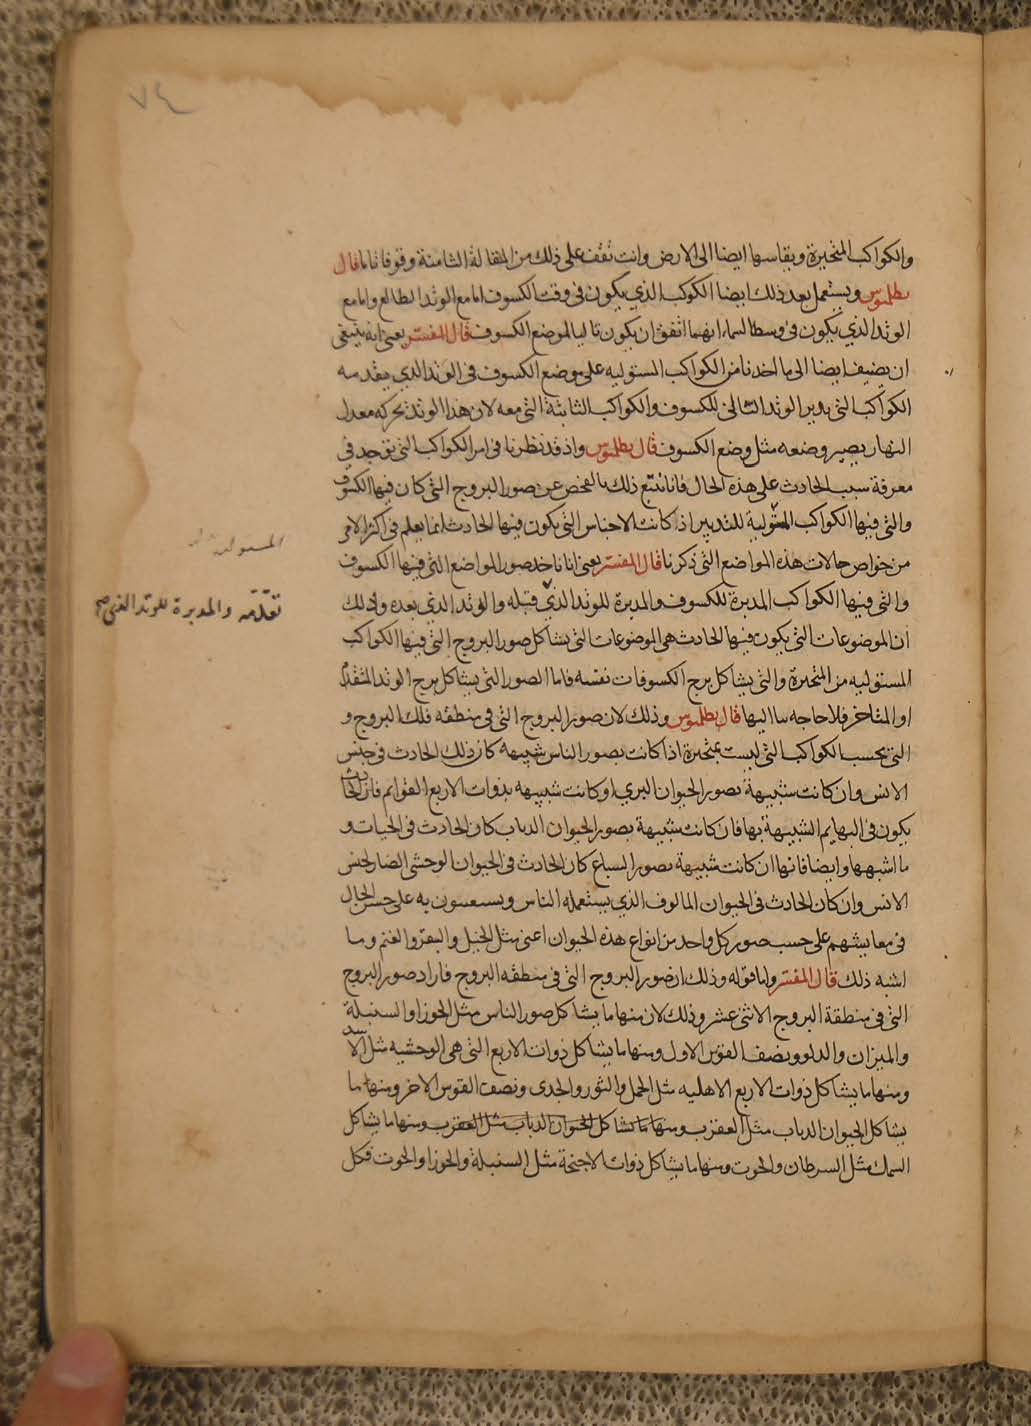 ٧٤
والكواكب المتحيرة وبقاسها ايضا الى الارض وانت تقف على ذلك من المقالة الثامنة وقوفا تاما قال
بطلميوس ويستعمل بعد ذلك ايضا الكوكب الذي يكون في وقت الكسوف اما مع الوتد الطالع واما مع
الوتد الذي يكون في وسط السماء ايهما اتفق ان يكون تاليا لموضع الكسوف قال المفسر يعني انه ينبغي
ان يضيف ايضا الى ما اخذنا من الكواكب المستوليه على موضع الكسوف في الوتد الذي يتقدمه
الكواكب التي يدبر الوتد التالي للكسوف والكواكب الثابتة التي معه لان هذا الوتد بحركه معدل
النهار يصير وضعه مثل وضع الكسوف قال بطلميوس واذ قد نظرنا في امر الكواكب التي توجد في
معرفة سبب الحادث على هذه الحال فانا نتبع ذلك بالفحص عن صور البروج التي كان فيها الكسوف
والتي فيها الكواكب المتولية للتدبير اذا كانت الاجناس التي يكون فيها الحادث انما يعلم في اكثر الامر
من خواص حالات هذه المواضع التي ذكرنا قال المفسر يعني انا ناخذ صور المواضع التي فيها الكسوف
والتي فيها الكواكب المدبرة للكسوف والمدبرة للوتد الذي قبله والوتد الذي بعده وذلك
تقدمه والمدبرة للوتد الذي صح
ان الموضوعات التي يكون فيها الحادث هي الموضوعات التي يشاكل صور البروج التي فيها الكواكب
المستوليه من المتحيرة والتي يشاكل برج الكسوفات نفسه فاما الصور التي يشاكل برج الوتد المتقدم
او المتاخر فلا حاجه بنا اليها قال بطلميوس وذلك لان صور البروج التي في منطقه فلك البروج و
التي بحسب الكواكب التي ليست بمتحيرة اذا كانت بصور الناس شبيهه كان ذلك الحادث في جنس
الانس وان كانت شبيهة بصور الحيوان البري او كانت شبيهه بذوات الاربع القوايم فان الحادث
يكون في البهايم الشبيهة بها فان كانت شبيهة بصور الحيوان الدباب كان الحادث في الحيات و
ما اشبهها وايضا فانها ان كانت شبيهة بصور السباع كان الحادث في الحيوان الوحشي الضار لجنس
الانس وان كان الحادث في الحيوان المالوف الذي يستعمله الناس ويستعينون به على حسن الحال
في معايشهم على حسب صور كل واحد من انواع هذه الحيوان اعنى مثل الخيل والبقر والغنم وما
اشبه ذلك قال المفسر واما قوله وذلك ان صور البروج التي في منطقه البروج فاراد صور البروج
التي في منطقة البروج الاثنى عشر وذلك لان منها ما يشاكل صور الناس مثل الجوزا والسنبلة
والميزان والدلو ونصف القوس الاول ومنها ما يشاكل ذوات الاربع التي هي الوحشيه مثل الاسد
ومنها ما يشاكل ذوات الاربع الاهليه مثل الحمل والثور والجدى ونصف القوس الاخر ومنها ما
يشاكل الحيوان الدباب مثل العقرب ومنها ما يشاكل الحيوان الدباب مثل العقرب ومنها ما يشاكل
السمك مثل السرطان والحوت ومنها ما يشاكل ذوات الاجنحة مثل السنبلة والجوزا والحوت فكل